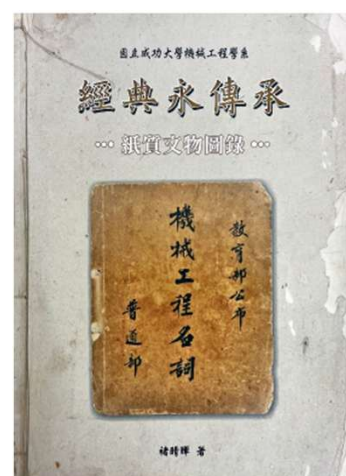 國立成功大學機械工程學系
經典永傳承
··· 紙質文物圖錄 ···
教育部公布
機械工程名詞
普通部
褚晴暉 著